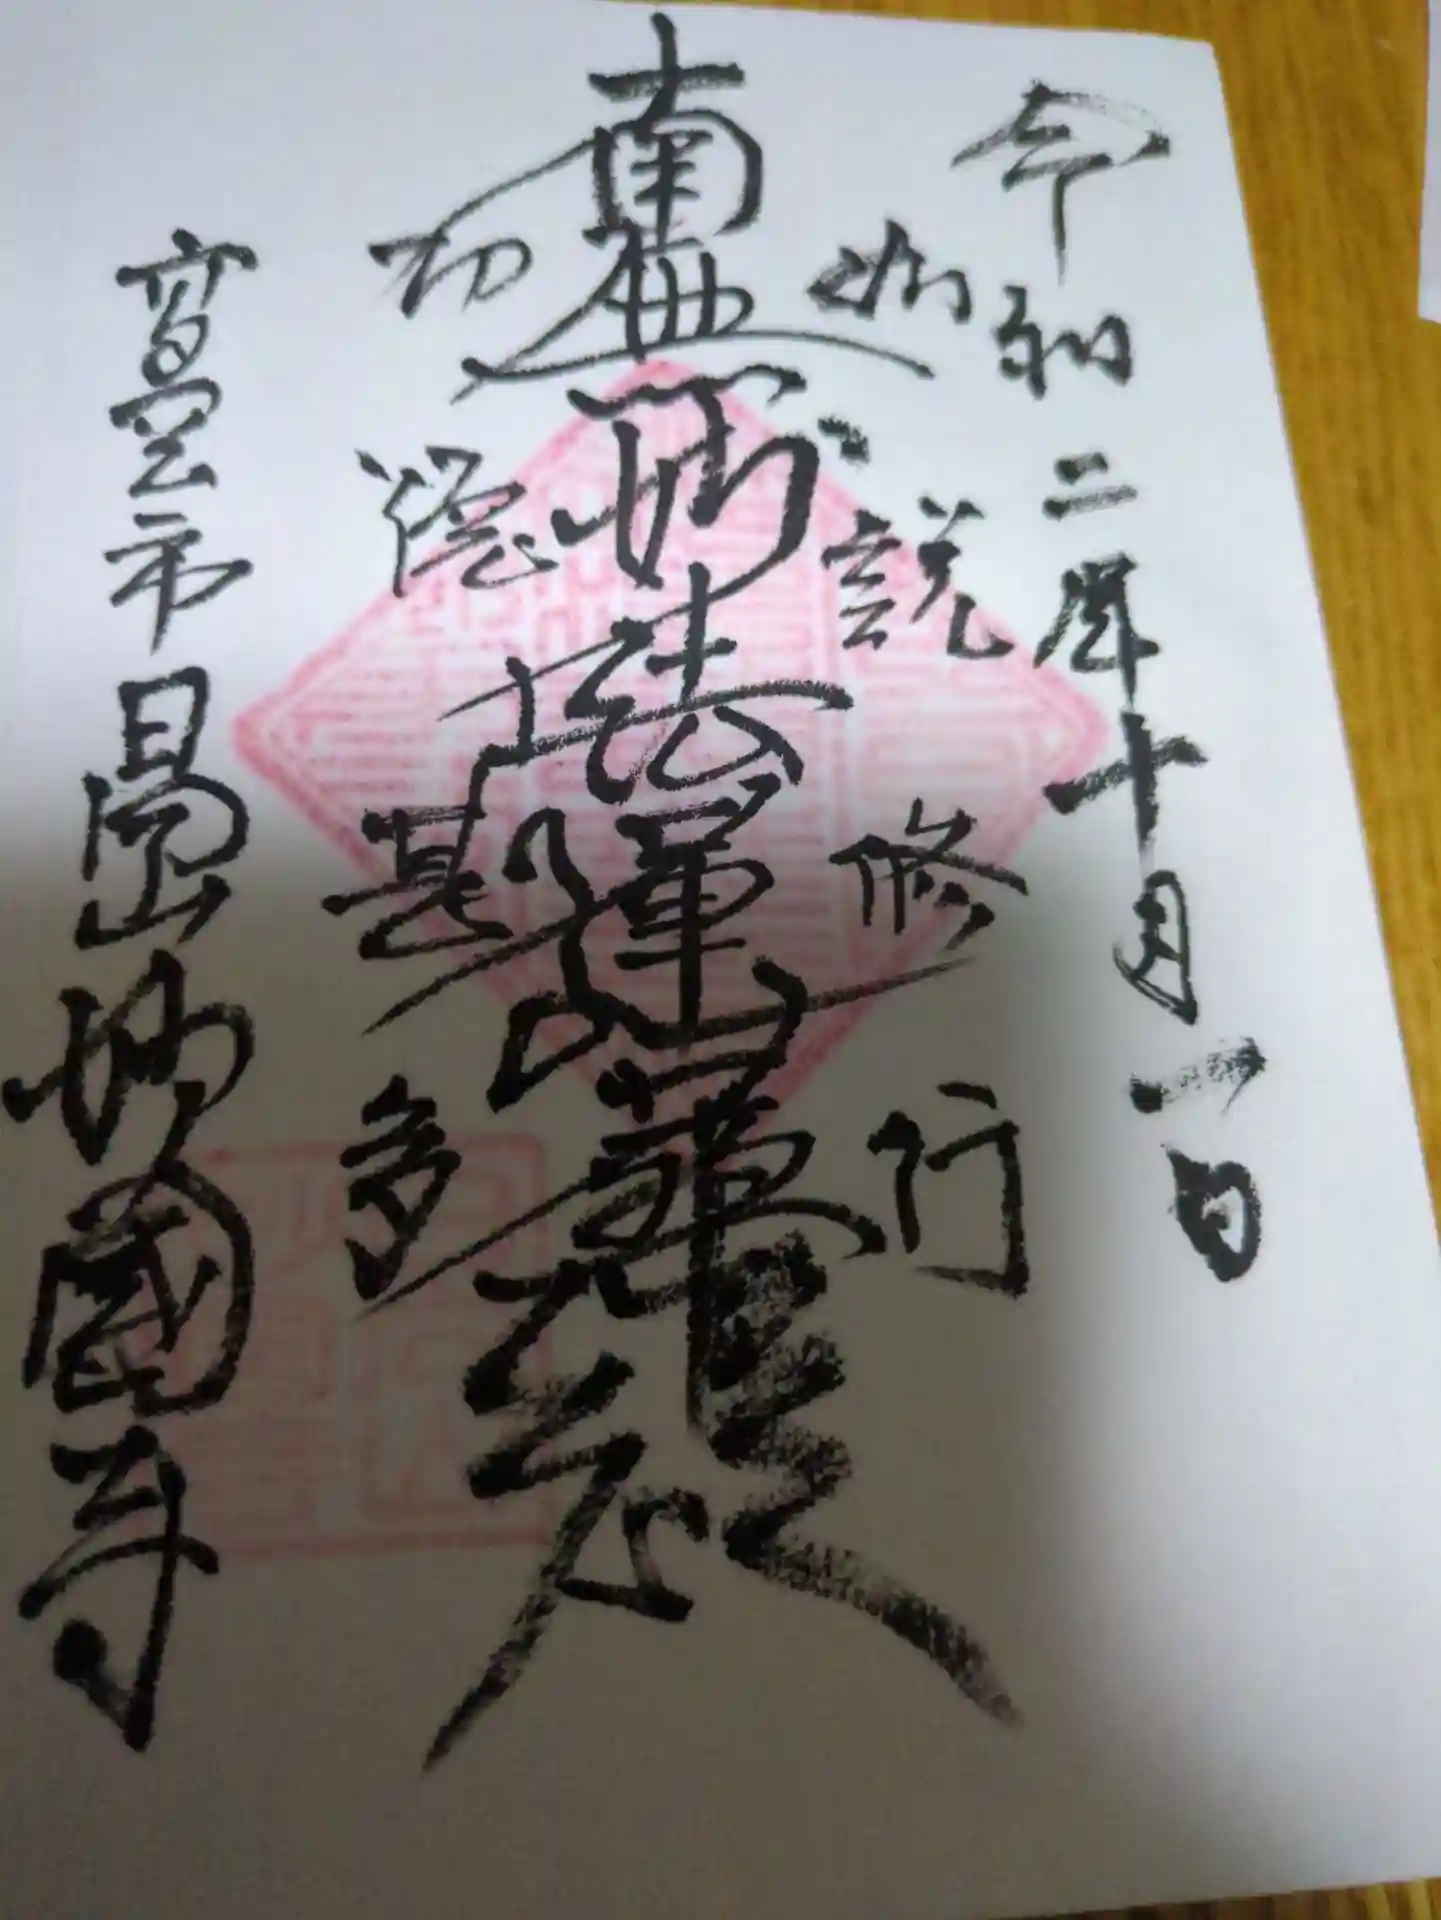 令和二年十月一日
如説修行
南無妙法蓮華経
功徳甚多
市 日圓山 妙國寺